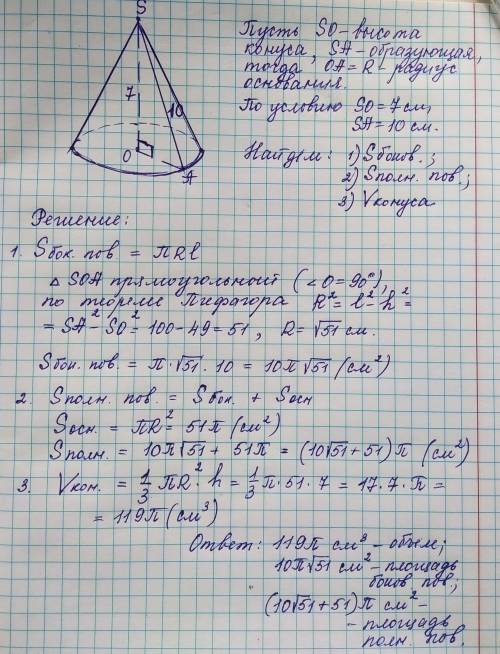 S
7
10
O
A
Пусть SO - высота
конуса, SA - образующая,
тогда OA = R - радиус
основания.
По условию SO = 7 см,
SA = 10 см.
Найдём: 1) Sбоков.;
2) Sполн. пов.;
3) Vконуса
Решение:
1. Sбок. пов = πRl
△ SOA прямоугольный (∠O = 90°),
по теореме Пифагора R² = l² - h² =
= SA² - SO² = 100 - 49 = 51, R = √51 см.
Sбок. пов. = π · √51 · 10 = 10π√51 (см²)
2. Sполн. пов. = Sбок. + Sосн
Sосн. = πR² = 51π (см²)
Sполн. = 10π√51 + 51π = (10√51 + 51)π (см²)
3. Vкон. = 1/3 πR² · h = 1/3 π · 51 · 7 = 17 · 7 · π =
= 119π (см³)
Ответ: 119π см³ - объём;
10π√51 см² - площадь
боков пов;
(10√51 + 51)π см² -
- площадь
полн. пов.